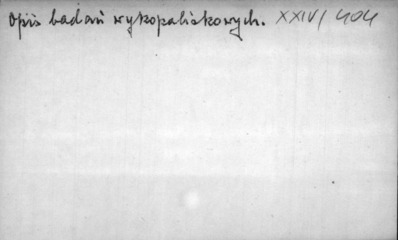 Opis badań wykopaliskowych. XXIV/404